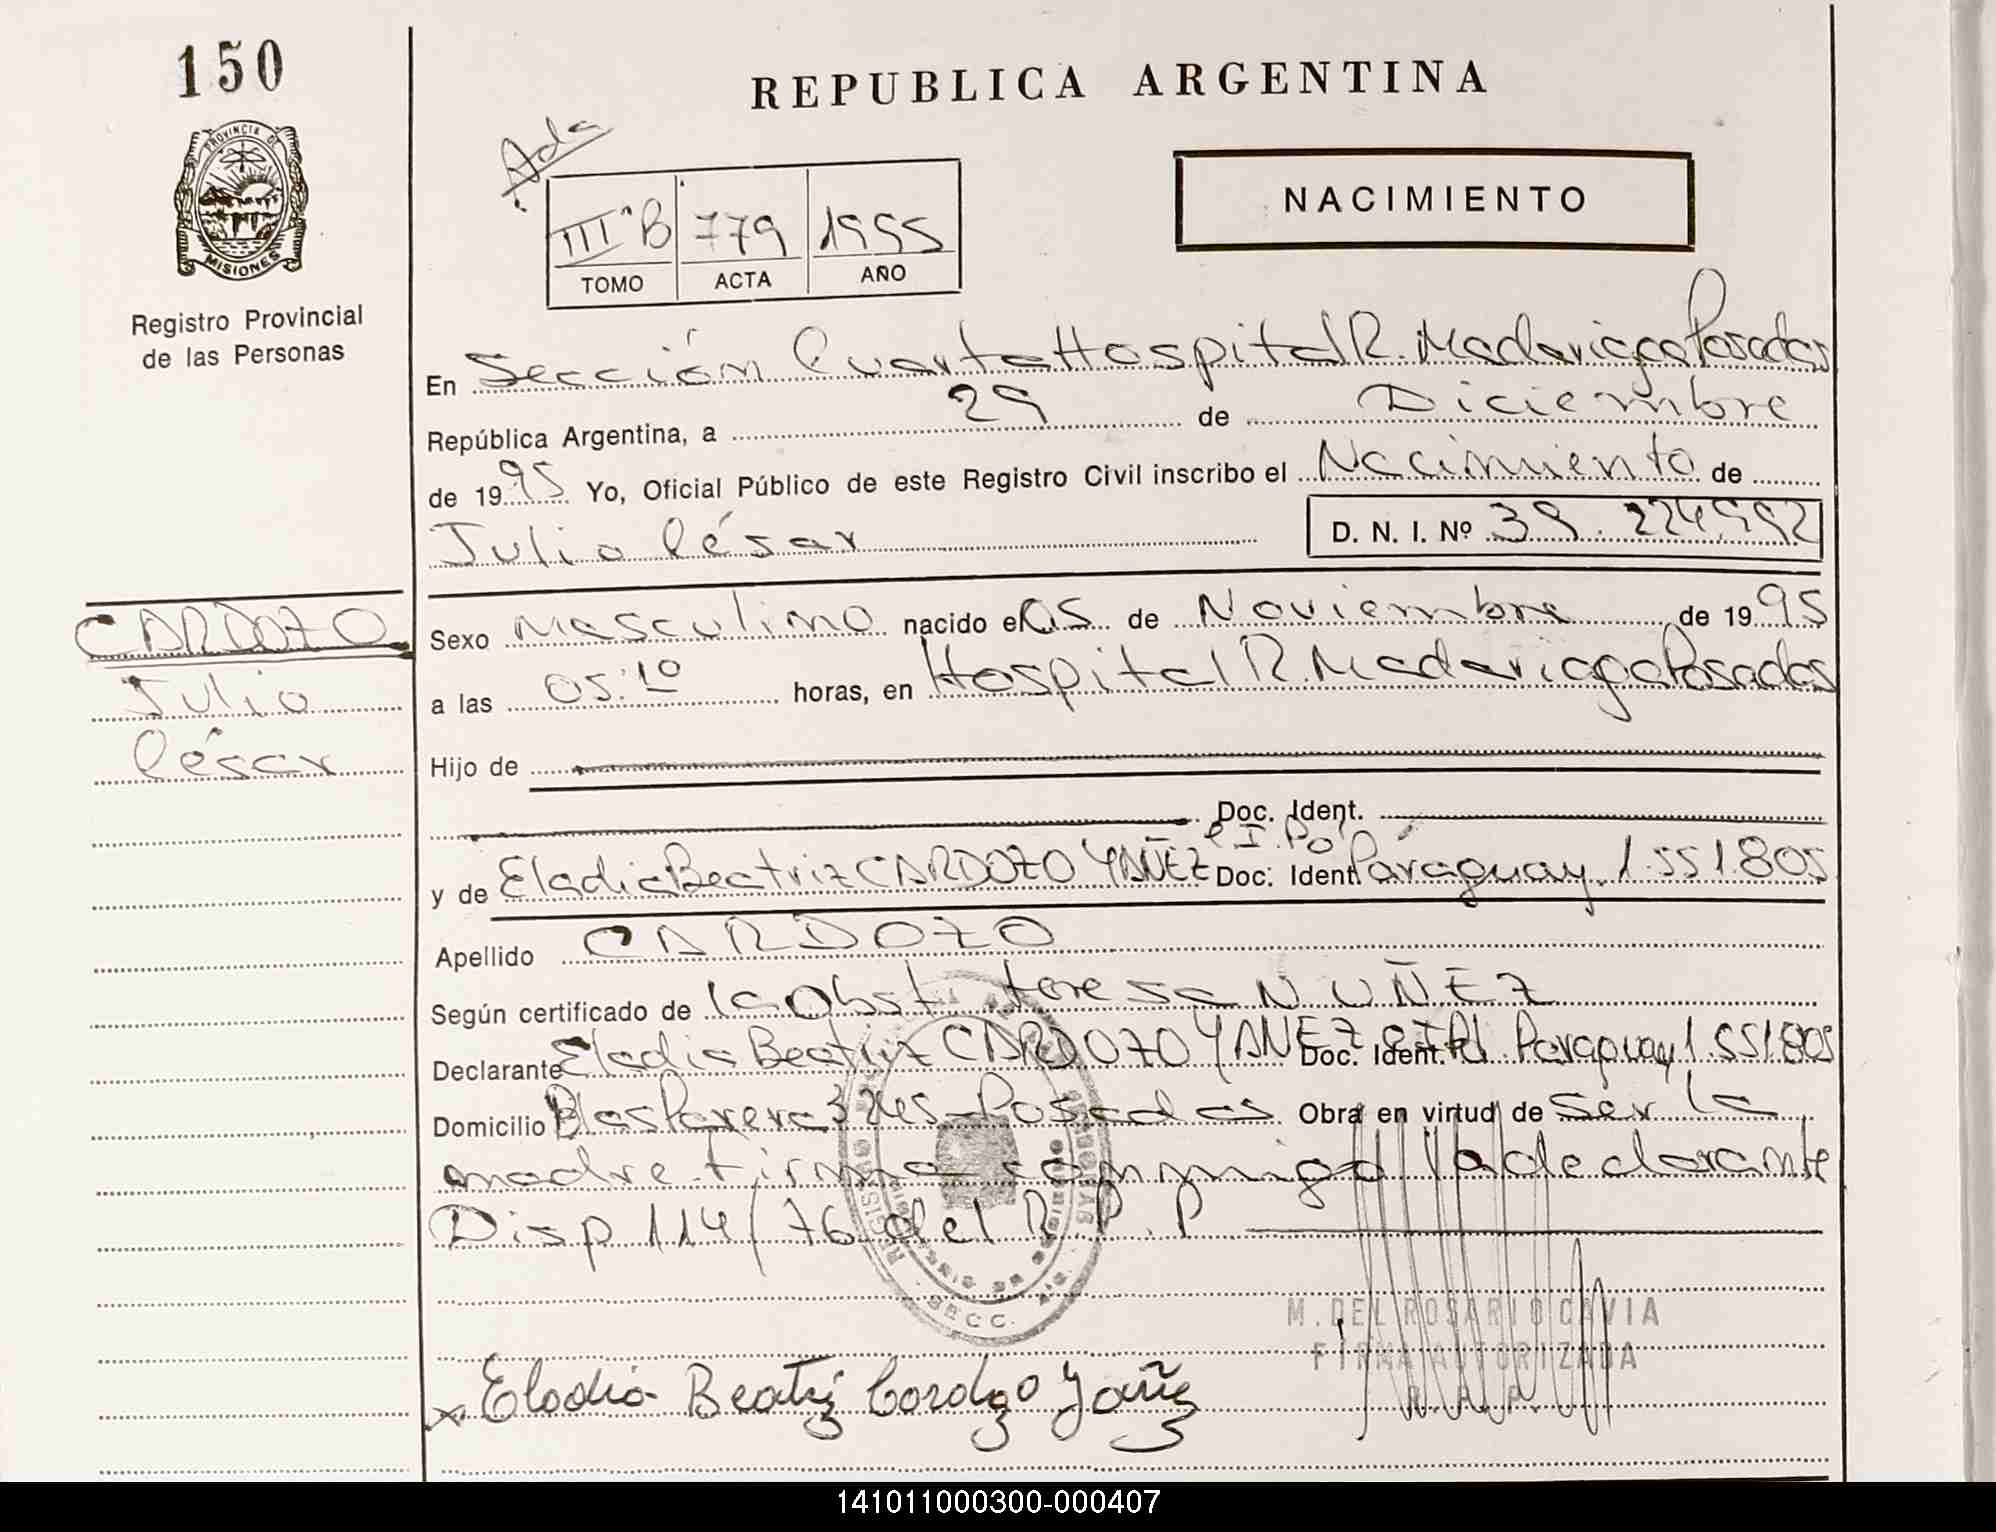 150
REPUBLICA ARGENTINA
PROVINCIA DE
MISIONES
Registro Provincial
de las Personas
Ada
NACIMIENTO
IIIºB 779 1995
TOMO ACTA AÑO
En Sección Cuarta Hospital R. Madariaga Posadas
República Argentina, a 29 de Diciembre
de 1995 Yo, Oficial Público de este Registro Civil inscribo el Nacimiento de
Julio César D. N. I. Nº 39.224,992
CARDOZO
Julio
César
Sexo Masculino nacido el 05 de Noviembre de 1995
a las 05:10 horas, en Hospital R. Madariaga Posadas
Hijo de
Doc. Ident.
y de Eladia Beatriz CARDOZO YAÑEZ Doc. Ident. C.I. Pol Paraguay 1.551.805
Apellido CARDOZO
Según certificado de la Obst teresa NUÑEZ
Declarante Eladia Beatriz CARDOZO YAÑEZ Doc. Ident. C.I. Pol Paraguay 1.551.805
Domicilio Blas Parera 3245 - Posadas Obra en virtud de ser la
madre. firma conmigo la declarante
Disp 114/76 del R. P. P
SECC.
M. DEL ROSARIO CAVIA
FIRMA AUTORIZADA
R. P. P.
x Eladia Beatriz Cardozo Yañez
141011000300-000407